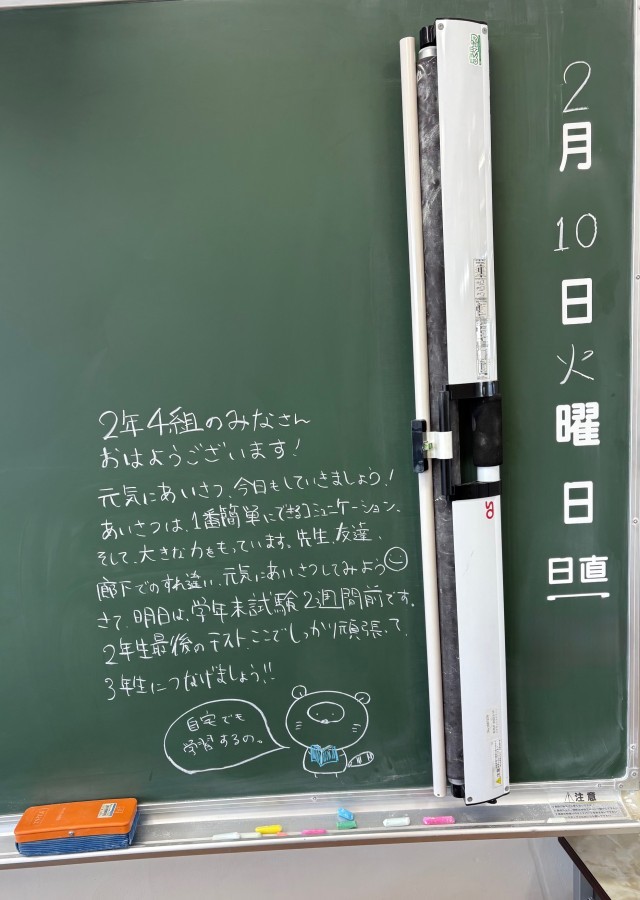 2年4組のみなさん
おはようございます！
元気にあいさつ、今日もしていきましょう！
あいさつは、1番簡単にできるコミュニケーション、
そして、大きな力をもっています。先生、友達、
廊下でのすれ違い、元気にあいさつしてみよう
さて、明日は、学年末試験2週間前です。
2年生最後のテスト、ここでしっかり頑張って、
3年生につなげましょう!!
自宅でも
学習するの。
2
月
10
日
火
曜
日
日直
注意